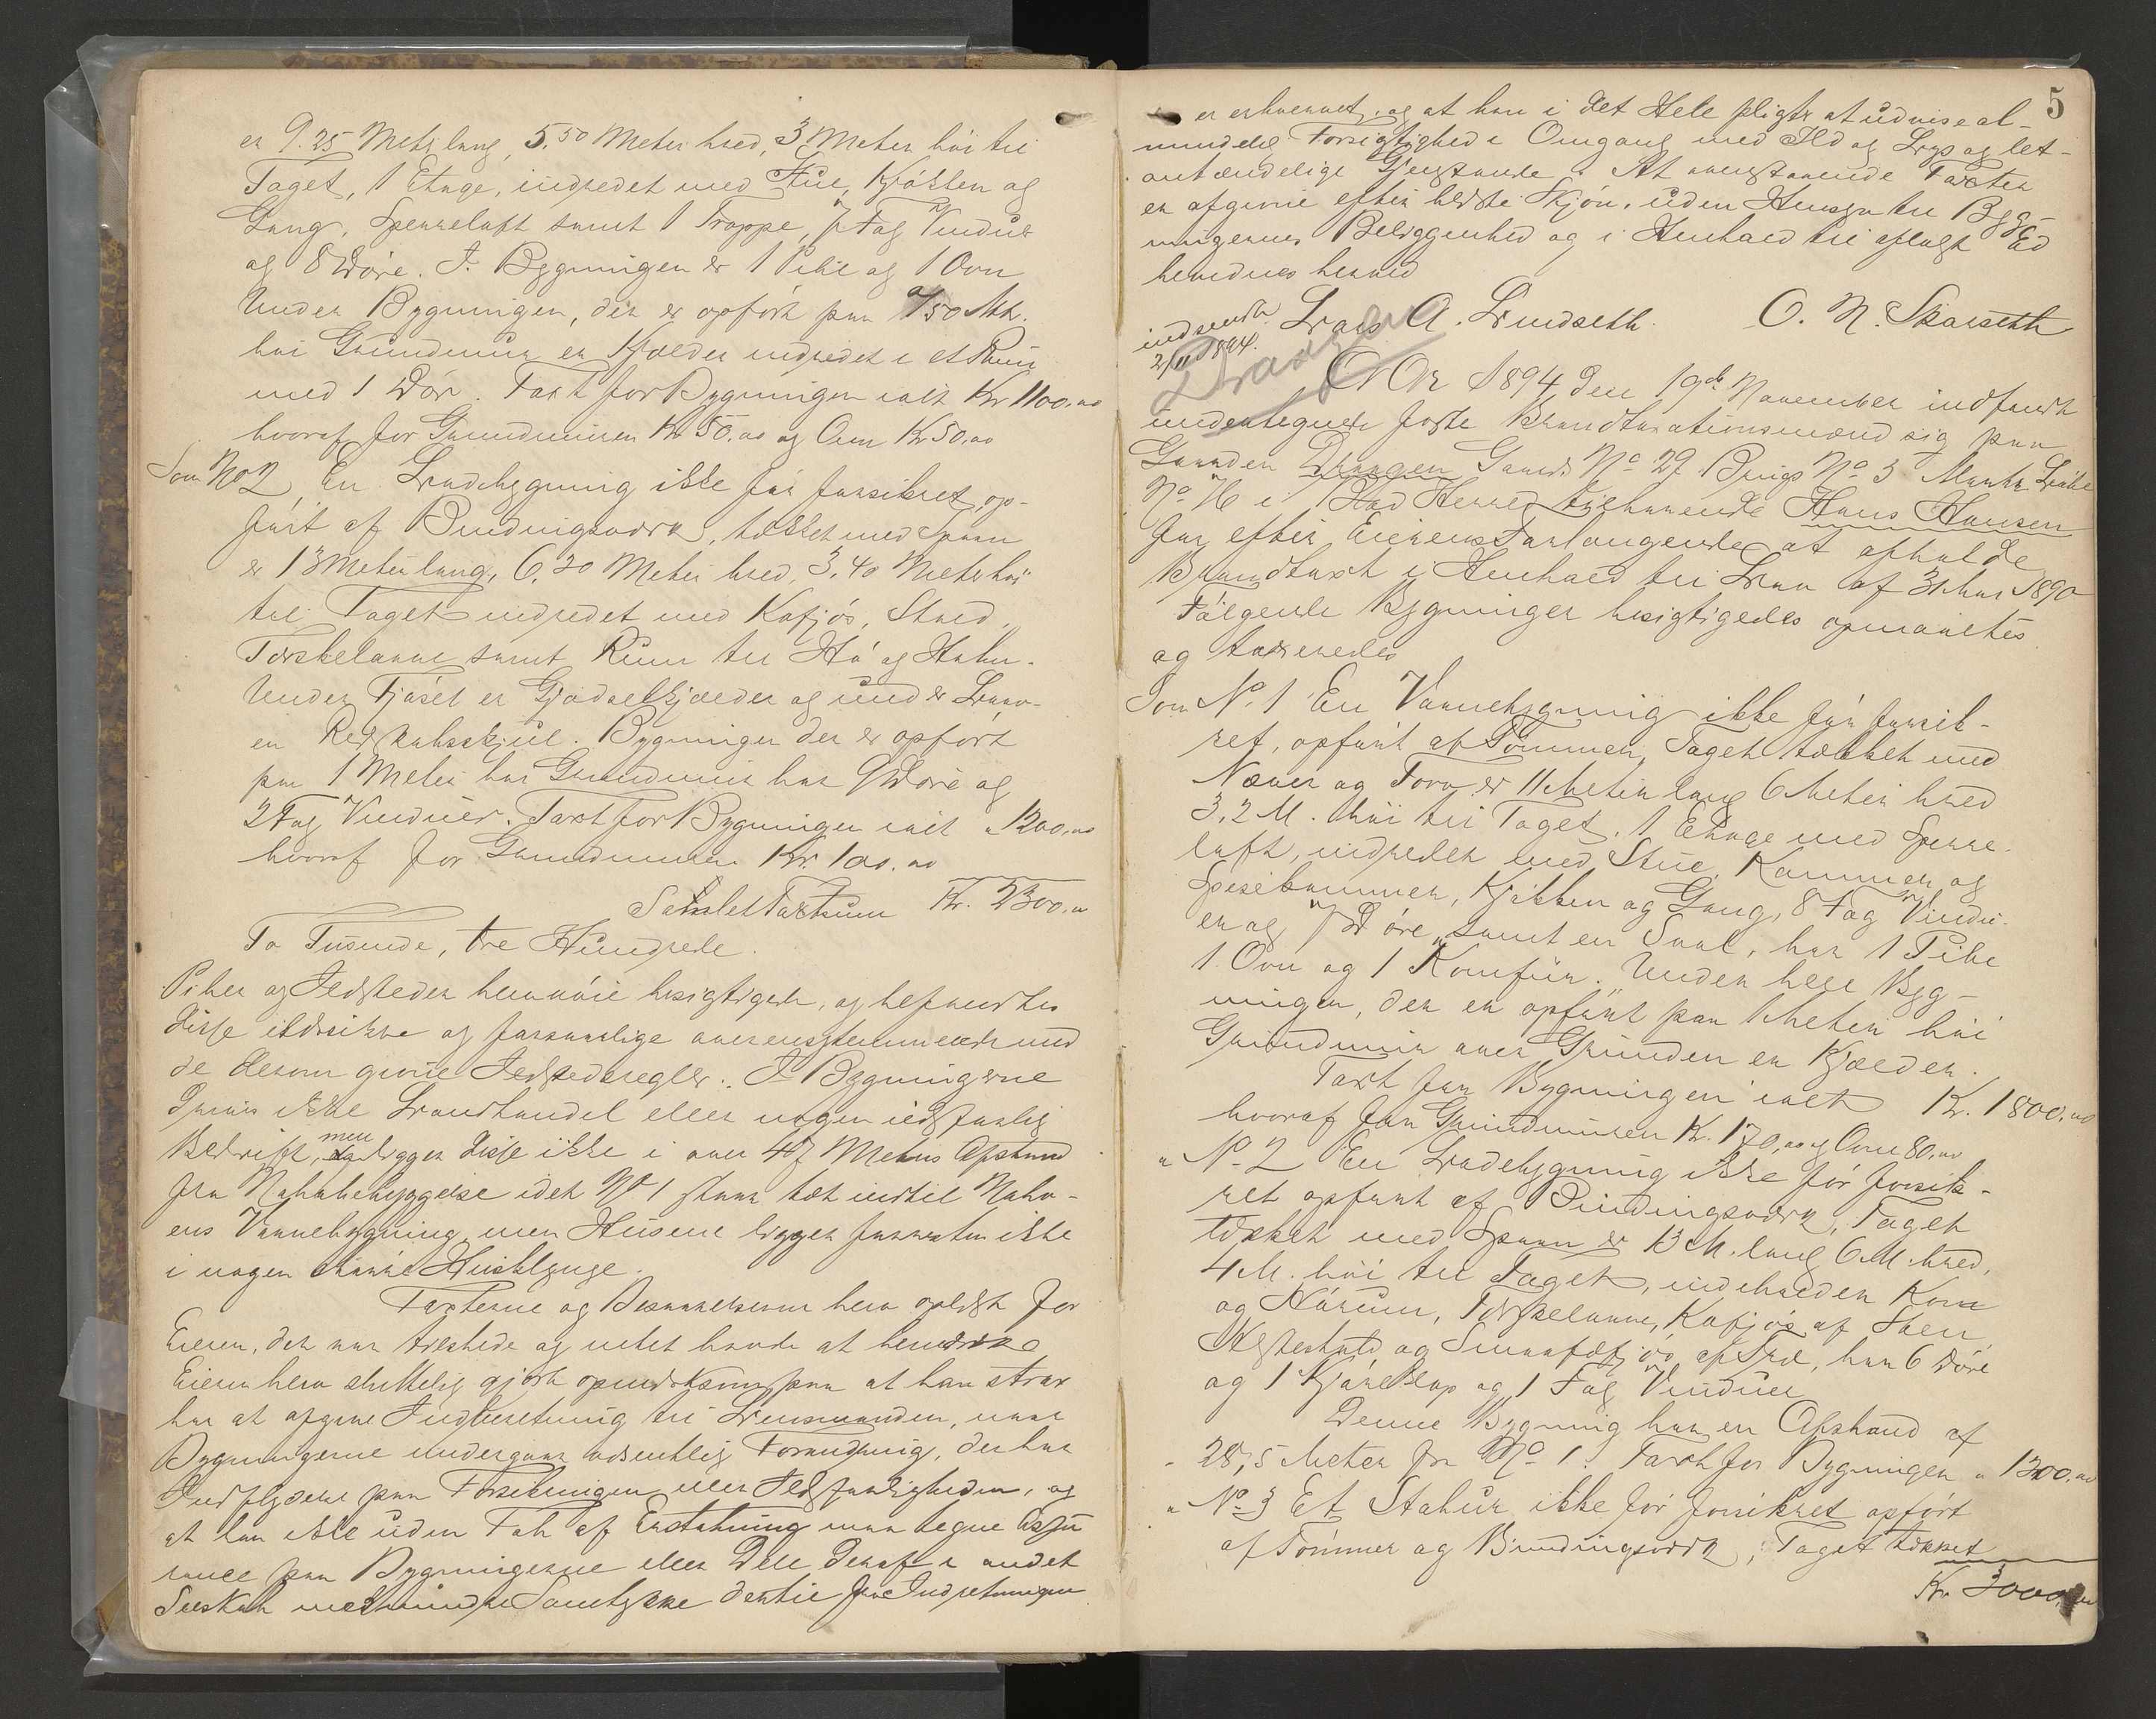 er 9.25 Meter lang, 5.50 Meter bred, 3 Meter høi til
Taget, 1 Etage, indredet med Stue, Kjøkken og
Gang, Sperreloft samt 1 Trappe, 7 Fag Vinduer
og 8 Døre. I Bygningen er 1 Pibe og 1 Ovn
Under Bygningen, der er opført paa 0/50 Mtr.
høi Grundmur er Kjælder indredet i et Rum
med 1 Dør. Taxt for Bygningen ialt Kr 1100.00
hvoraf for Grundmuren Kr 50.00 og Ovn Kr 50.00
Som No 2 En Ladebygning ikke før forsikret, op-
ført af Bindingsværk, tækket med Spaan
er 13 Meter lang, 6.20 Meter bred, 3.40 Meter høi
til Taget indredet med Kofjøs, Stald,
Tærskelaave samt Rum til Hø og Halm.
Under Fjøset er Gjødselkjælder og under Laave
en Redskabsskjul. Bygningen der er opført
paa 1 Meter høi Grundmur har 9 Døre og
2 Fag Vinduer. Taxt for Bygningen ialt " 1200.00
hvoraf for Grundmuren Kr. 100.00
Samlet Taxtsum Kr. 2300.00
To Tusinde, tre Hundrede.
Piber og Ildsteder blev nøie besigtigede, og befandtes
disse ildsikre og forsvarlige overensstemmende med
de derom givne Ildstedsregler. I Bygningerne
drives ikke Landhandel eller nogen ildsfarlig
Bedrift, men ligger disse ikke i over 47 Meters Afstand
fra Nabobebyggelse idet No 1 staar tæt indtil Nabo-
ens Vaanebygning, men Husene ligger forresten ikke
i nogen større Husklynge.
Taxterne og Beskrivelserne blev oplæst for
Eieren, der var tilstede og intet havde at bemærke
Eieren blev skriftelig gjort opmærksom paa at han strax
har at afgive Indberetning til Lensmanden, naar
Bygningerne undergaar væsentlig Forandring, der har
Indflydelse paa Forsikringen eller Ildsfarligheden, og
at han ikke uden Tab af Erstatning maa tegne Assu
rance paa Bygningerne eller Dele deraf i andet
Selskab medmindre Samtykke dertil fra Indretningen
5
er erhvervet, og at han i det Hele pligter at udvise al-
mindelig Forsigtighed i Omgang med Ild og Lys og let-
antændelige Gjenstande. At ovenstaaende Taxter
er afgivne efter bedste Skjøn, uden Hensyn til Byg-
ningernes Beliggenhed og i Henhold til aflagt Ed
bevidnes herved
indsendt
2/11 1894.
Lars A. Lindseth. O. N. Skarseth
Draagen
Aar 1894 den 19de November indfandt
undertegnede faste Brandtaxationsmænd sig paa
Gaarden Draagen Gaards No 29 Brugs No 3 Matr. Løbe
No 76 i Bud Herred tilhørende Hans Hansen
for efter Eierens Forlangende at afholde
Brandtaxt i Henhold til Lov af 3 1890
Følgende Bygninger besigtigedes opmaaltes
og taxeredes
Som No. 1 En Vaanebygning ikke før forsik-
ret, opført af Tømmer, Taget tækket med
Næver og Torv er 11 Meter lang 6 Meter bred
3,2 M. høi til Taget. 1 Etage med Sperre-
loft, indredet med Stue, Kammer og
Spisekammer, Kjøkken og Gang, 8 Fag Vindu-
er og 7 Døre, samt en Sval, har 1 Pibe
1 Ovn og 1 Komfur. Under hele Byg-
ningen, der er opført paa 1 Meter høi
Grundmur over Grunden er Kjælder.
Taxt for Bygningen ialt Kr. 1800.00
hvoraf for Grundmuren Kr. 170.00 og Ovne 80.00
" No 2 En Ladebygning ikke før forsik-
ret opført af Bindingsværk, Taget
tækket med Spaan er 13 M. lang 6 M. bred,
4 M. høi til Taget, indeholder Korn
og Hørum, Tærskelaave, Kofjøs af Sten
Hestestald og Smaafæfjøs af Træ, har 6 Døre
og 1 og 1 Fag Vinduer
Denne Bygning har en Afstand af
28,5 Meter fra No 1. Taxt for Bygningen " 1200.00
" No 3 Et Stabur ikke før forsikret opført
af Tømmer og Bindingsværk, Taget tækket
Kr. 3000.00